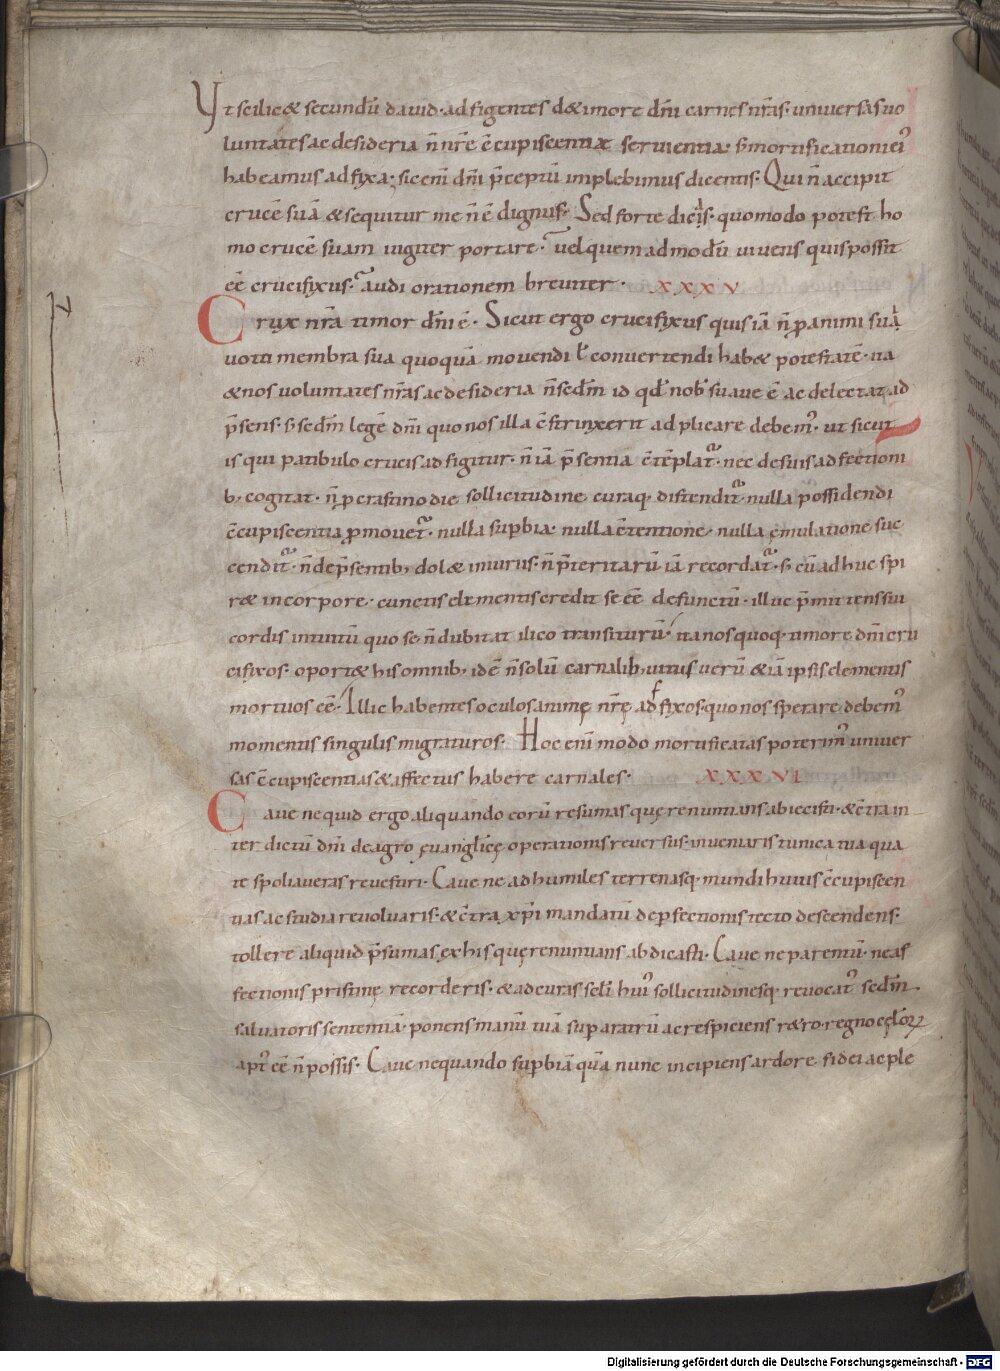 Yt scilic& secundū dauid· adfigentes de&imore dn̄i carnes nr̄as· uniuersas uo
luntates ac desideria n̄ nrē c̄cupiscentiæ seruientia· s; mortificationi ei᾽
habeamus adfixa; sic enī dn̄i p̄ceptū implebimus dicentis· Qui n̄ accipit
crucē suā & sequitur me n̄ ē dignus· Sed forte dicis· quomodo potest ho
mo crucē suam iugiter portare· uel quemadmodū uiuens quis possit
eē crucifixus· audi orationem breuiter· XXXV
Crux nr̄a timor dn̄i ē· Sicut ergo crucifixus quis iā n̄ p animi sui
uotū membra sua quoquā mouendi ł conuertendi hab& potestatē· ita
& nos uoluntates nr̄as ac desideria n̄ secdm̄ id qd̄ nob᾽ suaue ē ac delectat ad
p̄sens· s; secdm̄ legē dn̄i quo nos illa c̄strinxerit adplicare debem᾽· ut sicut
is qui patibulo crucis adfigitur· n̄ iā p̄sentia c̄tēplat᾽· nec de suis adfectioni
b; cogitat· n̄ p crastino die sollicitudine curaq· distendit᾽· nulla possidendi
c̄cupiscentia pmouet᾽· nulla supbia· nulla c̄tentione· nulla ęmulatione suc
cendit᾽· n̄ de p̄sentib; dol& iniuriis· n̄ p̄teritarū iā recordat᾽· s; cū adhuc spi
r& in corpore· cunctis elementis credit se eē defunctū· illuc p̄mittens sui
cordis intuitū quo se n̄ dubitat ilico transiturū· ita nos quoq· timore dn̄i cru
cifixos· oport& his omnib; id ē n̄ solū carnalib; uitiis uerū & iā ipsis elementis
mortuos eē· Illic habentes oculos animę nrę adfixos· quo nos sperare debem᾽
momentis singulis migraturos· Hoc enī modo mortificatas poterim᾽ uniuer
sas c̄cupiscentias & affectus habere carnales· XXXVI
Caue ne quid ergo aliquando eorū resumas quę renuntians abiecisti· & c̄tra in
terdictū dn̄i de agro ęuanglicę operationis reuersus· inueniaris tunica tua qua
te spoliaueras reuestiri· Caue ne ad humiles terrenasq· mundi huius c̄cupiscen
tias ac studia reuoluaris· & c̄tra xp̄i mandatū de pfectionis tecto descendens·
tollere aliquid p̄sumas ex his quę renuntians abdicasti· Caue ne parentū· ne af
fectionis pristinę recorderis· & ad curas sc̄li hui᾽ sollicitudinesq· reuocat᾽ secdm̄
saluatoris sententiā· ponens manū tuā sup aratrū ac respiciens r&ro· regno cęloꝝ
apt᾽ eē n̄ possis· Caue nequando supbiā quā nunc incipiens ardore fidei ac ple
Digitalisierung gefördert durch die Deutsche Forschungsgemeinschaft - DFG